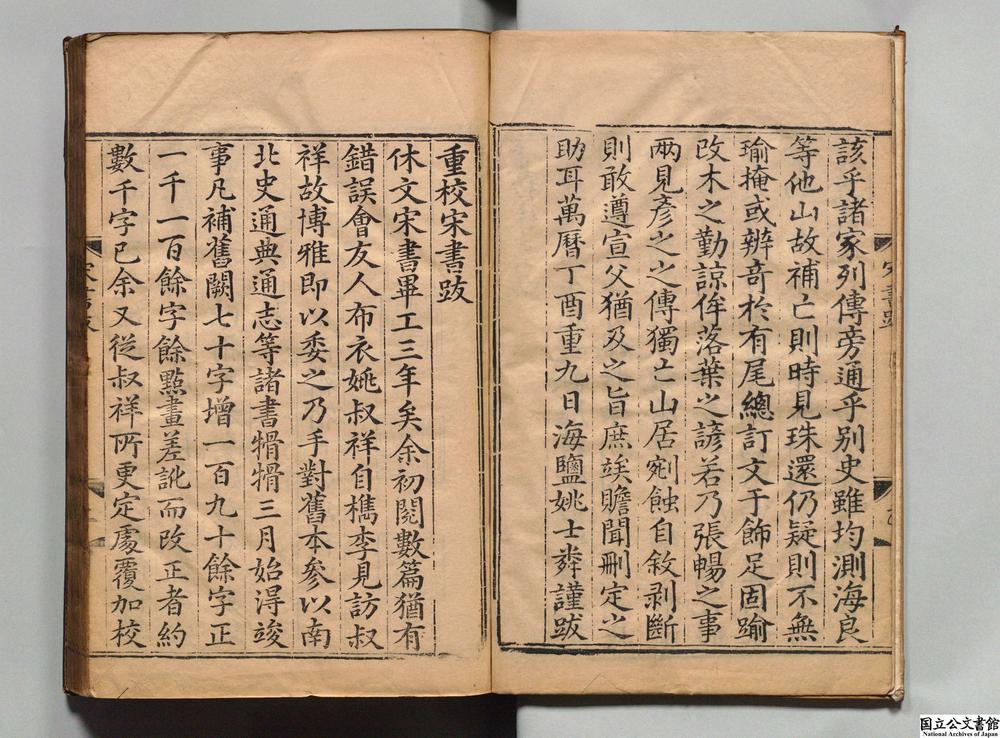 該乎諸家列傳旁通乎別史雖均測海良
等他山故補亡則時見珠還仍疑則不無
瑜掩或辨奇於有尾總訂文于飾足固踰
改木之勤諒侔落葉之諺若乃張暢之事
兩見彥之之傳獨亡山居剜蝕自敘剥斷
則敢遵宣父猶及之旨庶竢贍聞刪定之
助耳萬曆丁酉重九日海鹽姚士粦謹跋
重校宋書跋
休文宋書畢工三年矣余初閱數篇猶有
錯誤會友人布衣姚叔祥自檇李見訪叔
祥故博雅即以委之乃手對舊本參以南
北史通典通志等諸書㨹㨹三月始得竣
事凡補舊闕七十字增一百九十餘字正
一千一百餘字餘點畫差訛而改正者約
數千字已余又從叔祥所更定處覆加校
国立公文書館
National Archives of Japan